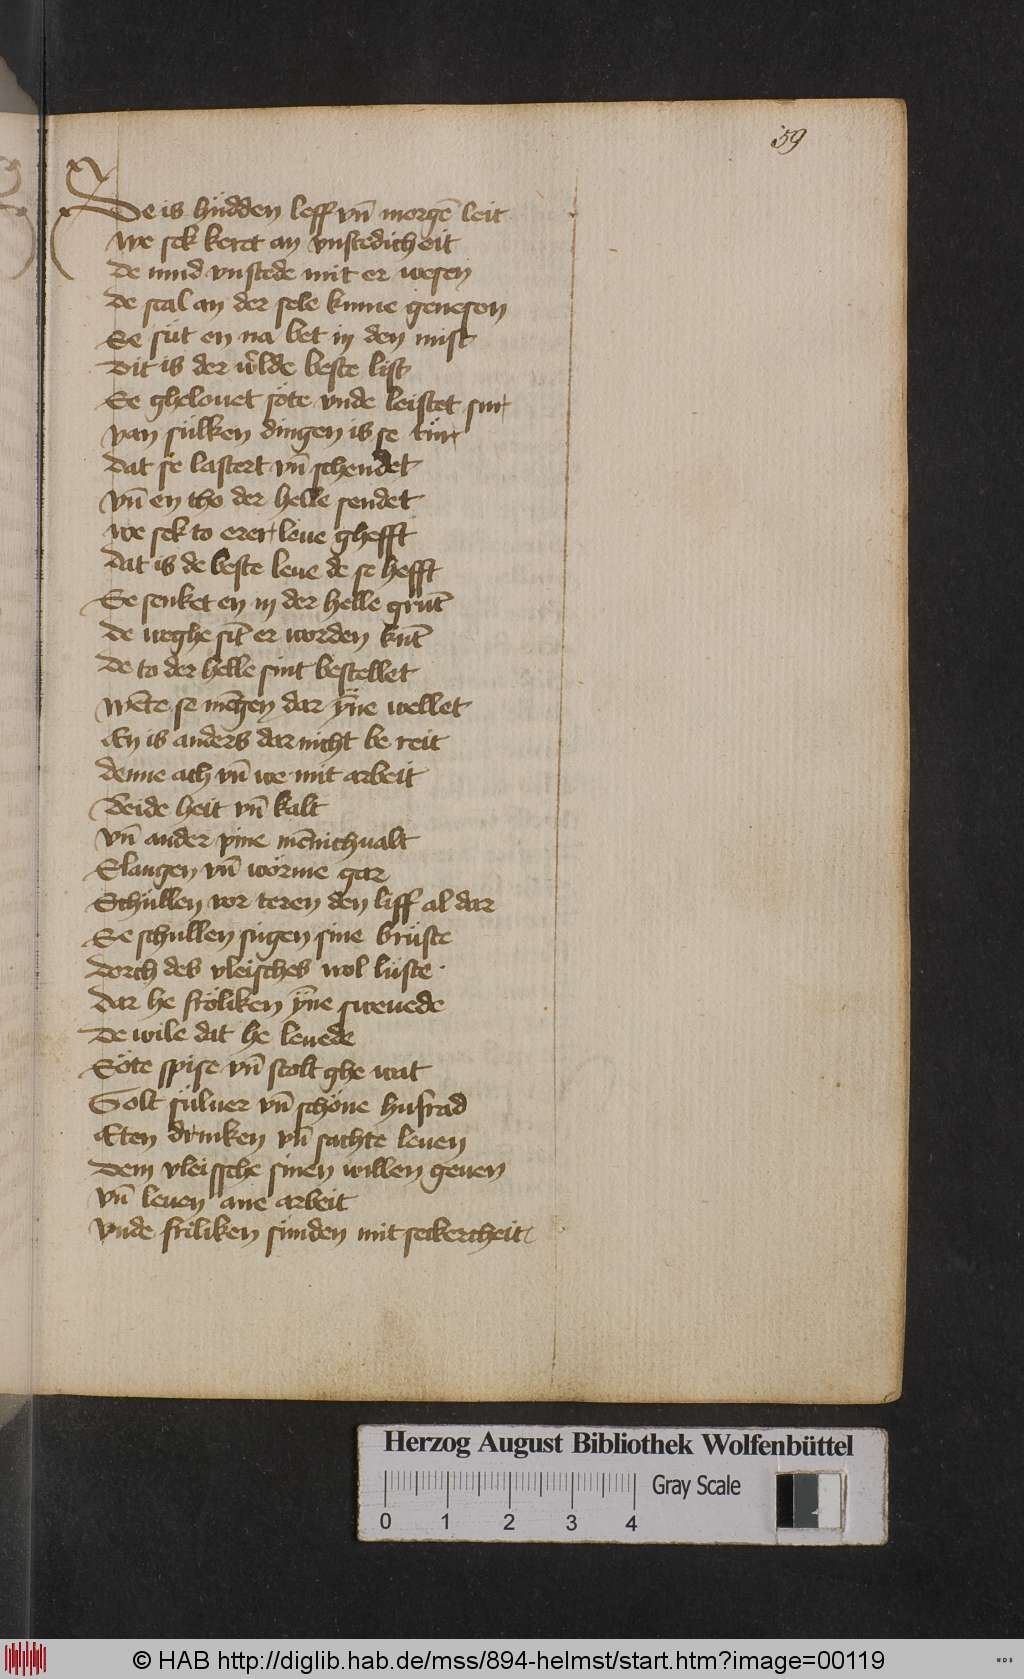 59
De is hüdden leff vn̄ morgē leit
we sek keret an vnstedicheit
De mud vnstede mit er wesen
de scal an der sele kume genesen
Se füt en na bet in den mist
Dit is der w̄lde beste list
Se ghelouet söte vnde leistet sur
van sülken dingen is se tür
dat se lastert vn̄ schendet
vn̄ en tho der helle sendet
we sek to erer leue ghefft
dat is de beste leue de se hefft
Se senket en in der helle grūt
De weghe sīt er worden kūt
De to der helle sint bestellet
wēte se mēgen dar ÿne wellet
En is anders dar nicht be reit
denne ach vn̄ we mit arbeit
Beide heit vn̄ kalt
vn̄ ander pine mēnichualt
Slangen vn̄ wörme gar
Schüllen vor teren den liff al dar
Se schullen sugen sine brüste
dorch des vleisches wol lüste
dar he fröliken ÿne sweuede
De wile dat he leuede
Söte spise vn̄ stolt ghe wat
Golt sülver vn̄ schöne husrad
Eten drinken vn̄ sachte leuen
Dem vleissche sinen willen geuen
vn̄ leuen ane arbeit
vnde friliken sunden mit seckercheit
Herzog August Bibliothek Wolfenbüttel
Gray Scale
0 1 2 3 4
© HAB http://diglib.hab.de/mss/894-helmst/start.htm?image=00119